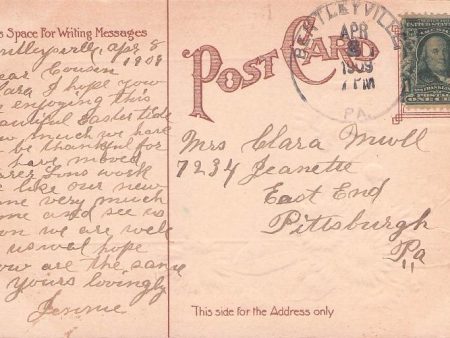 s Space For Writing Messages
ntlleyville, Apr 8
1909
ear Cousin
lara I hope you
re enjoying this
eautiful Easter tide
ow much we have
o be thankful for
have moved
earer work
e like our new
ome very much
ome and see us
oon we are well
s usual hope
ou are the same
Yours lovingly
Jennie
POST CARD
BENTLEYVILLE
APR
8
1909
7 PM
PA.
Mrs Clara
7234 Jeanette
East End
Pittsburgh
Pa
This side for the Address only